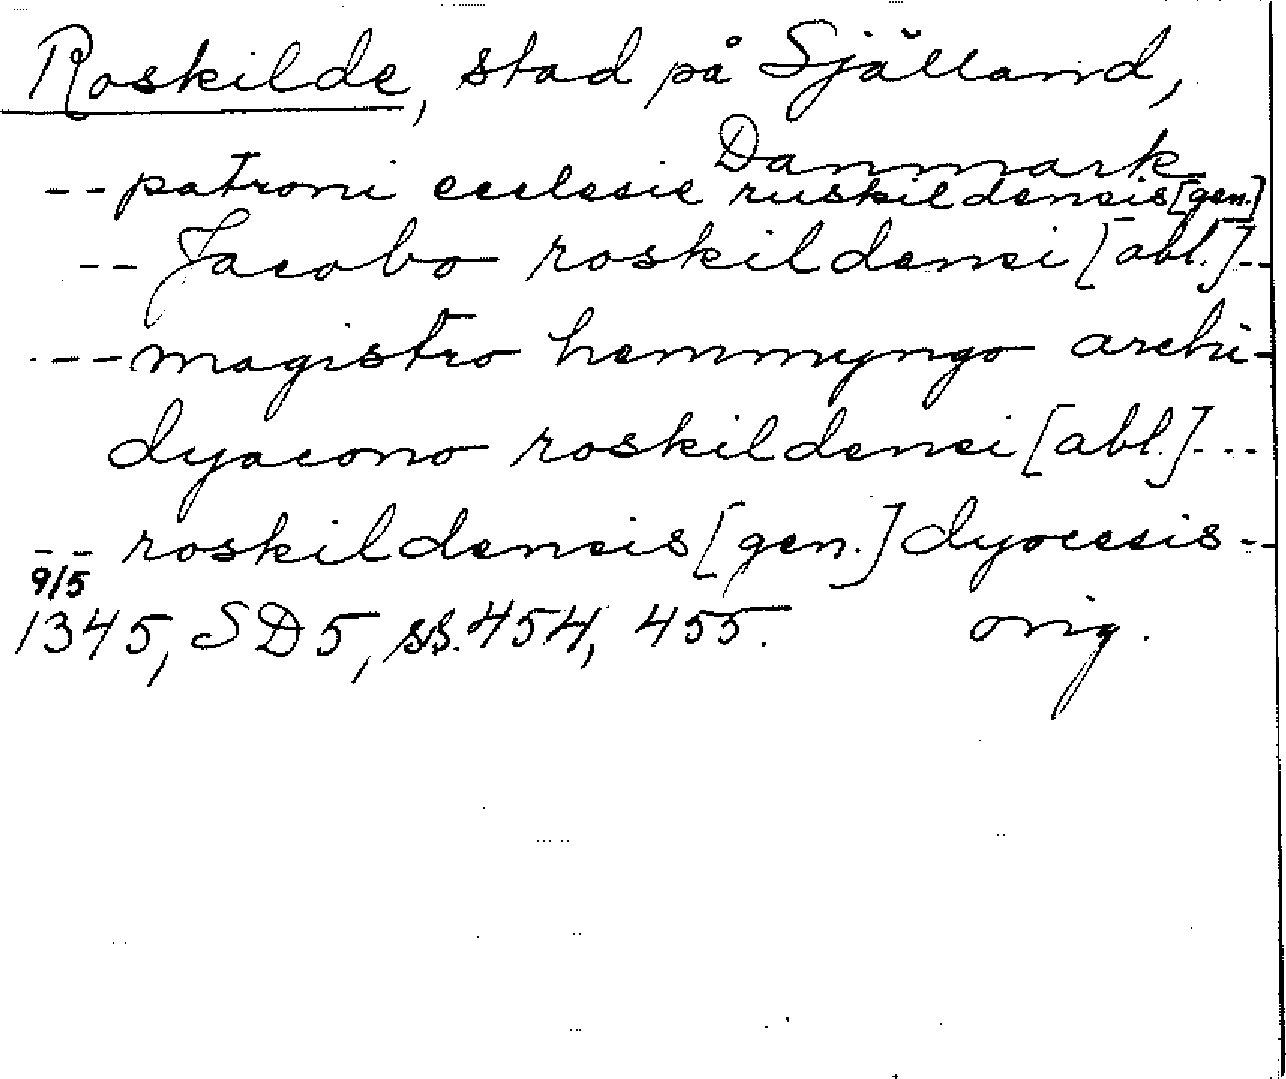 Roskilde, stad på Själland,
Danmark
-- patroni ecclesie ruskildensis [gen.]
-- Jacobo roskildensi [abl.] --
--- magistro hemmyngo archi-
dyacono roskildensi [abl.] ---
-- roskildensis [gen.] dyocesis --
9/5
1345, SD 5, ss. 454, 455. orig.